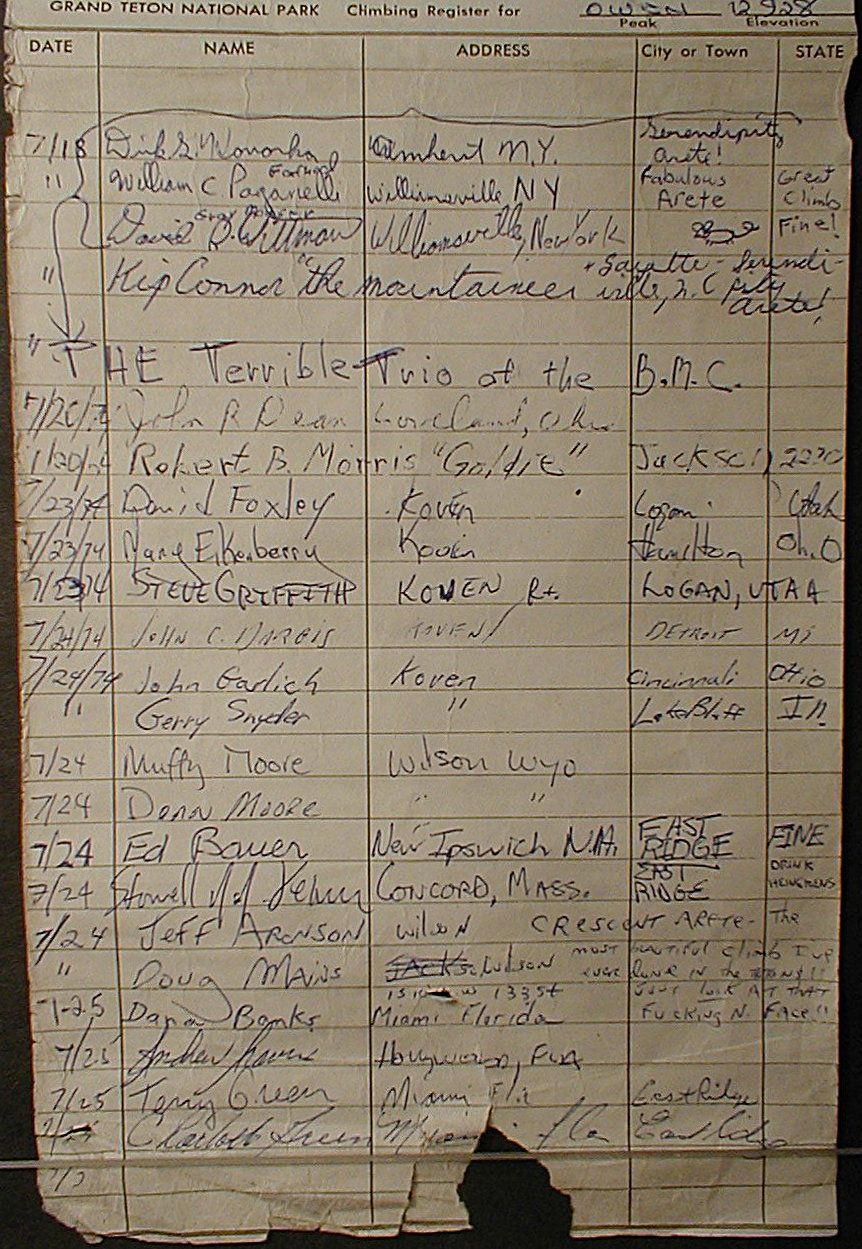 GRAND TETON NATIONAL PARK Climbing Register for OWEN 12,928
Peak Elevation
DATE NAME ADDRESS City or Town STATE
7/18 Dirk Amherst N.Y. Serendipity Arete!
" William C Paganelli Williamsville NY Fabulous Arete Great Climb
David Wittman Williamsville, New York Fine!
" Kip Connor "the mountaineer Serendipity Arete!
" THE Terrible Trio of the B.M.C.
7/20/74 John R Dean Loveland, Ohio
7/20/74 Robert B. Morris "Goldie" Jackson
7/23/74 David Foxley Koven Logan Utah
7/23/74 Eikenberry Koven Hamilton Oh.O
7/23/74 STEVE GRIFFITH KOVEN Rt. LOGAN, UTAA
7/24/74 JOHN C. KOVEN DETROIT Mi
7/24/74 John Garlich Koven Cincinnati Ohio
" Gerry Snyder " Lake Bluff Ill
7/24 Muffy Moore Wilson Wyo
7/24 Dean Moore " "
7/24 Ed Bauer New Ipswich N.H. EAST RIDGE FINE
7/24 Stowell CONCORD, MASS. EAST RIDGE DRINK HEINEKENS
7/24 JEFF ARONSON Wilson CRESCENT ARETE- The
" Doug MAINS Wilson MOST BEAUTIFUL climb I've
EVER DONE IN the TETONS!!
133 St JUST LOOK AT THAT
7-25 Dana Banks Miami Florida FUCKING N. FACE!!
7/25 Andrew Hollywood, FLA
7/25 Terry Green Miami Fla East Ridge
Charlotte Green Miami Fla East Ridge